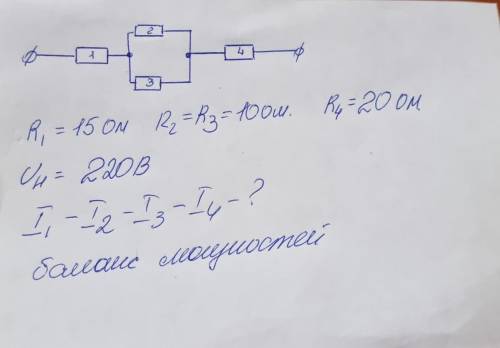 2
1
4
3
R₁ = 15 Ом R₂ = R₃ = 10 Ом. R₄ = 20 Ом
Uн = 220В
I₁ - I₂ - I₃ - I₄ - ?
баланс мощностей